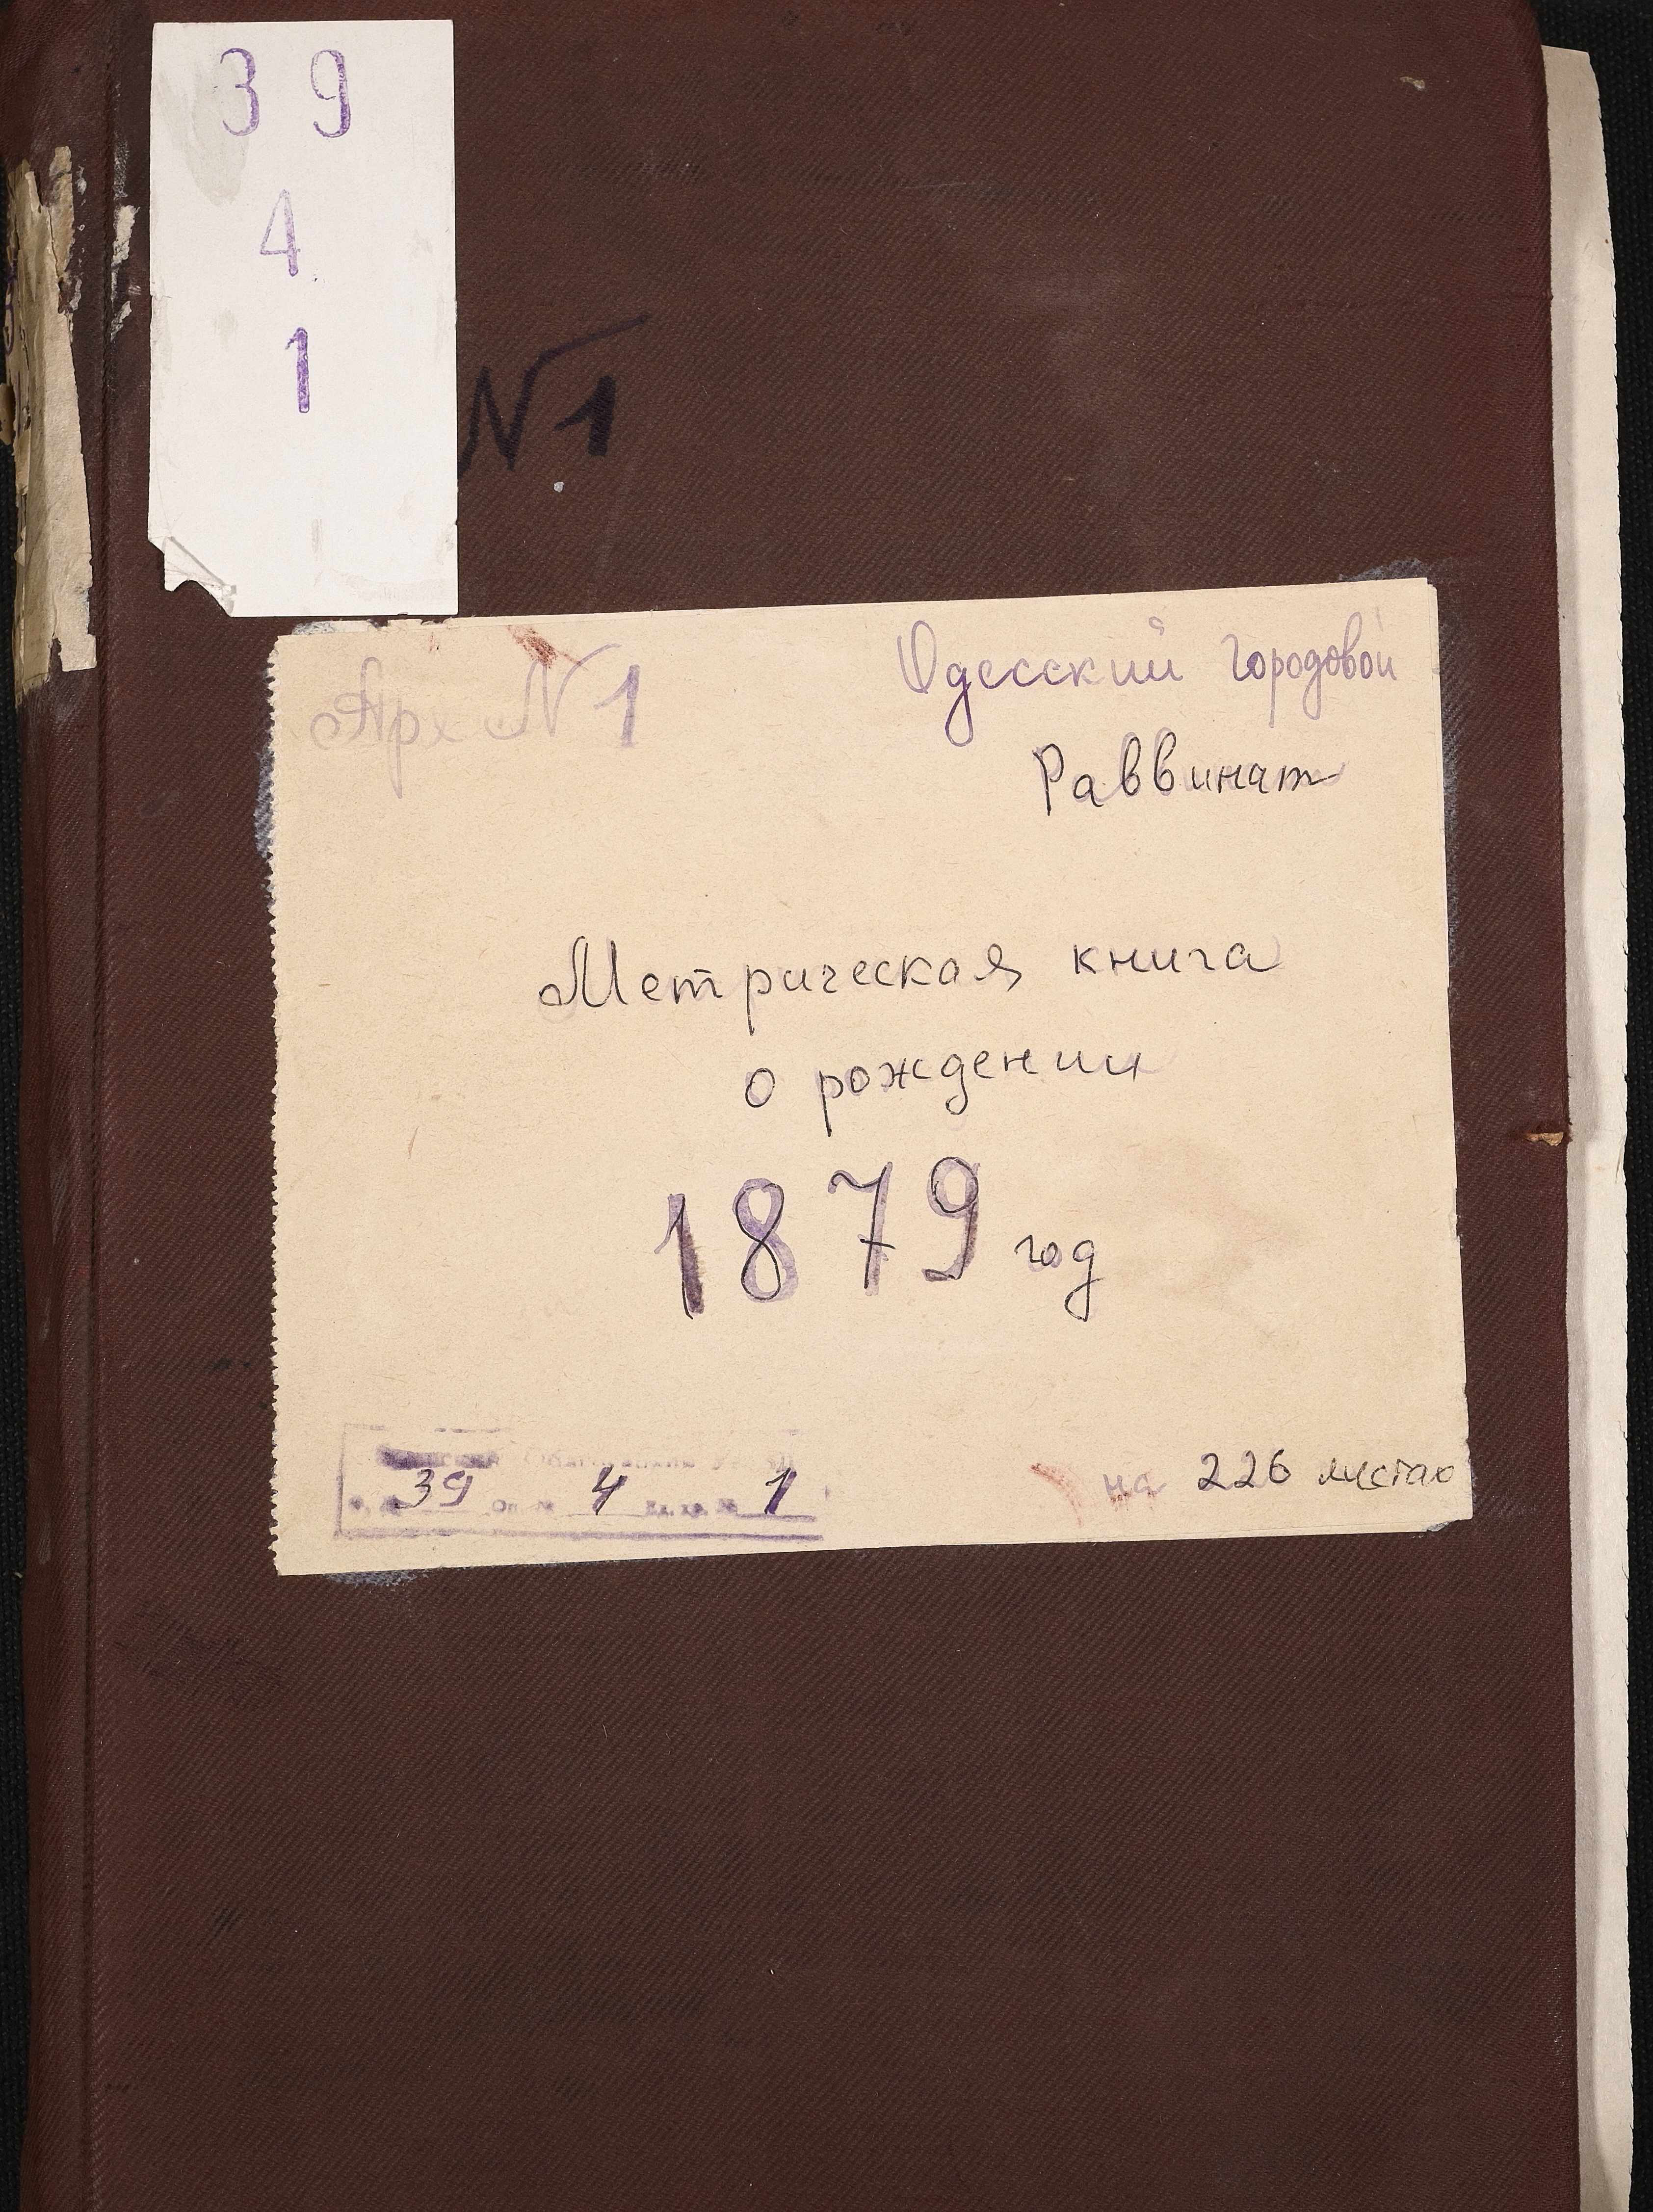 39
4
1
N1
Арх N 1
Одесский городовой
Раввинат
Метрическая книга
о рождении
1879 год
39 Оп. № 4 Ед. хр. № 1
на 226 листах